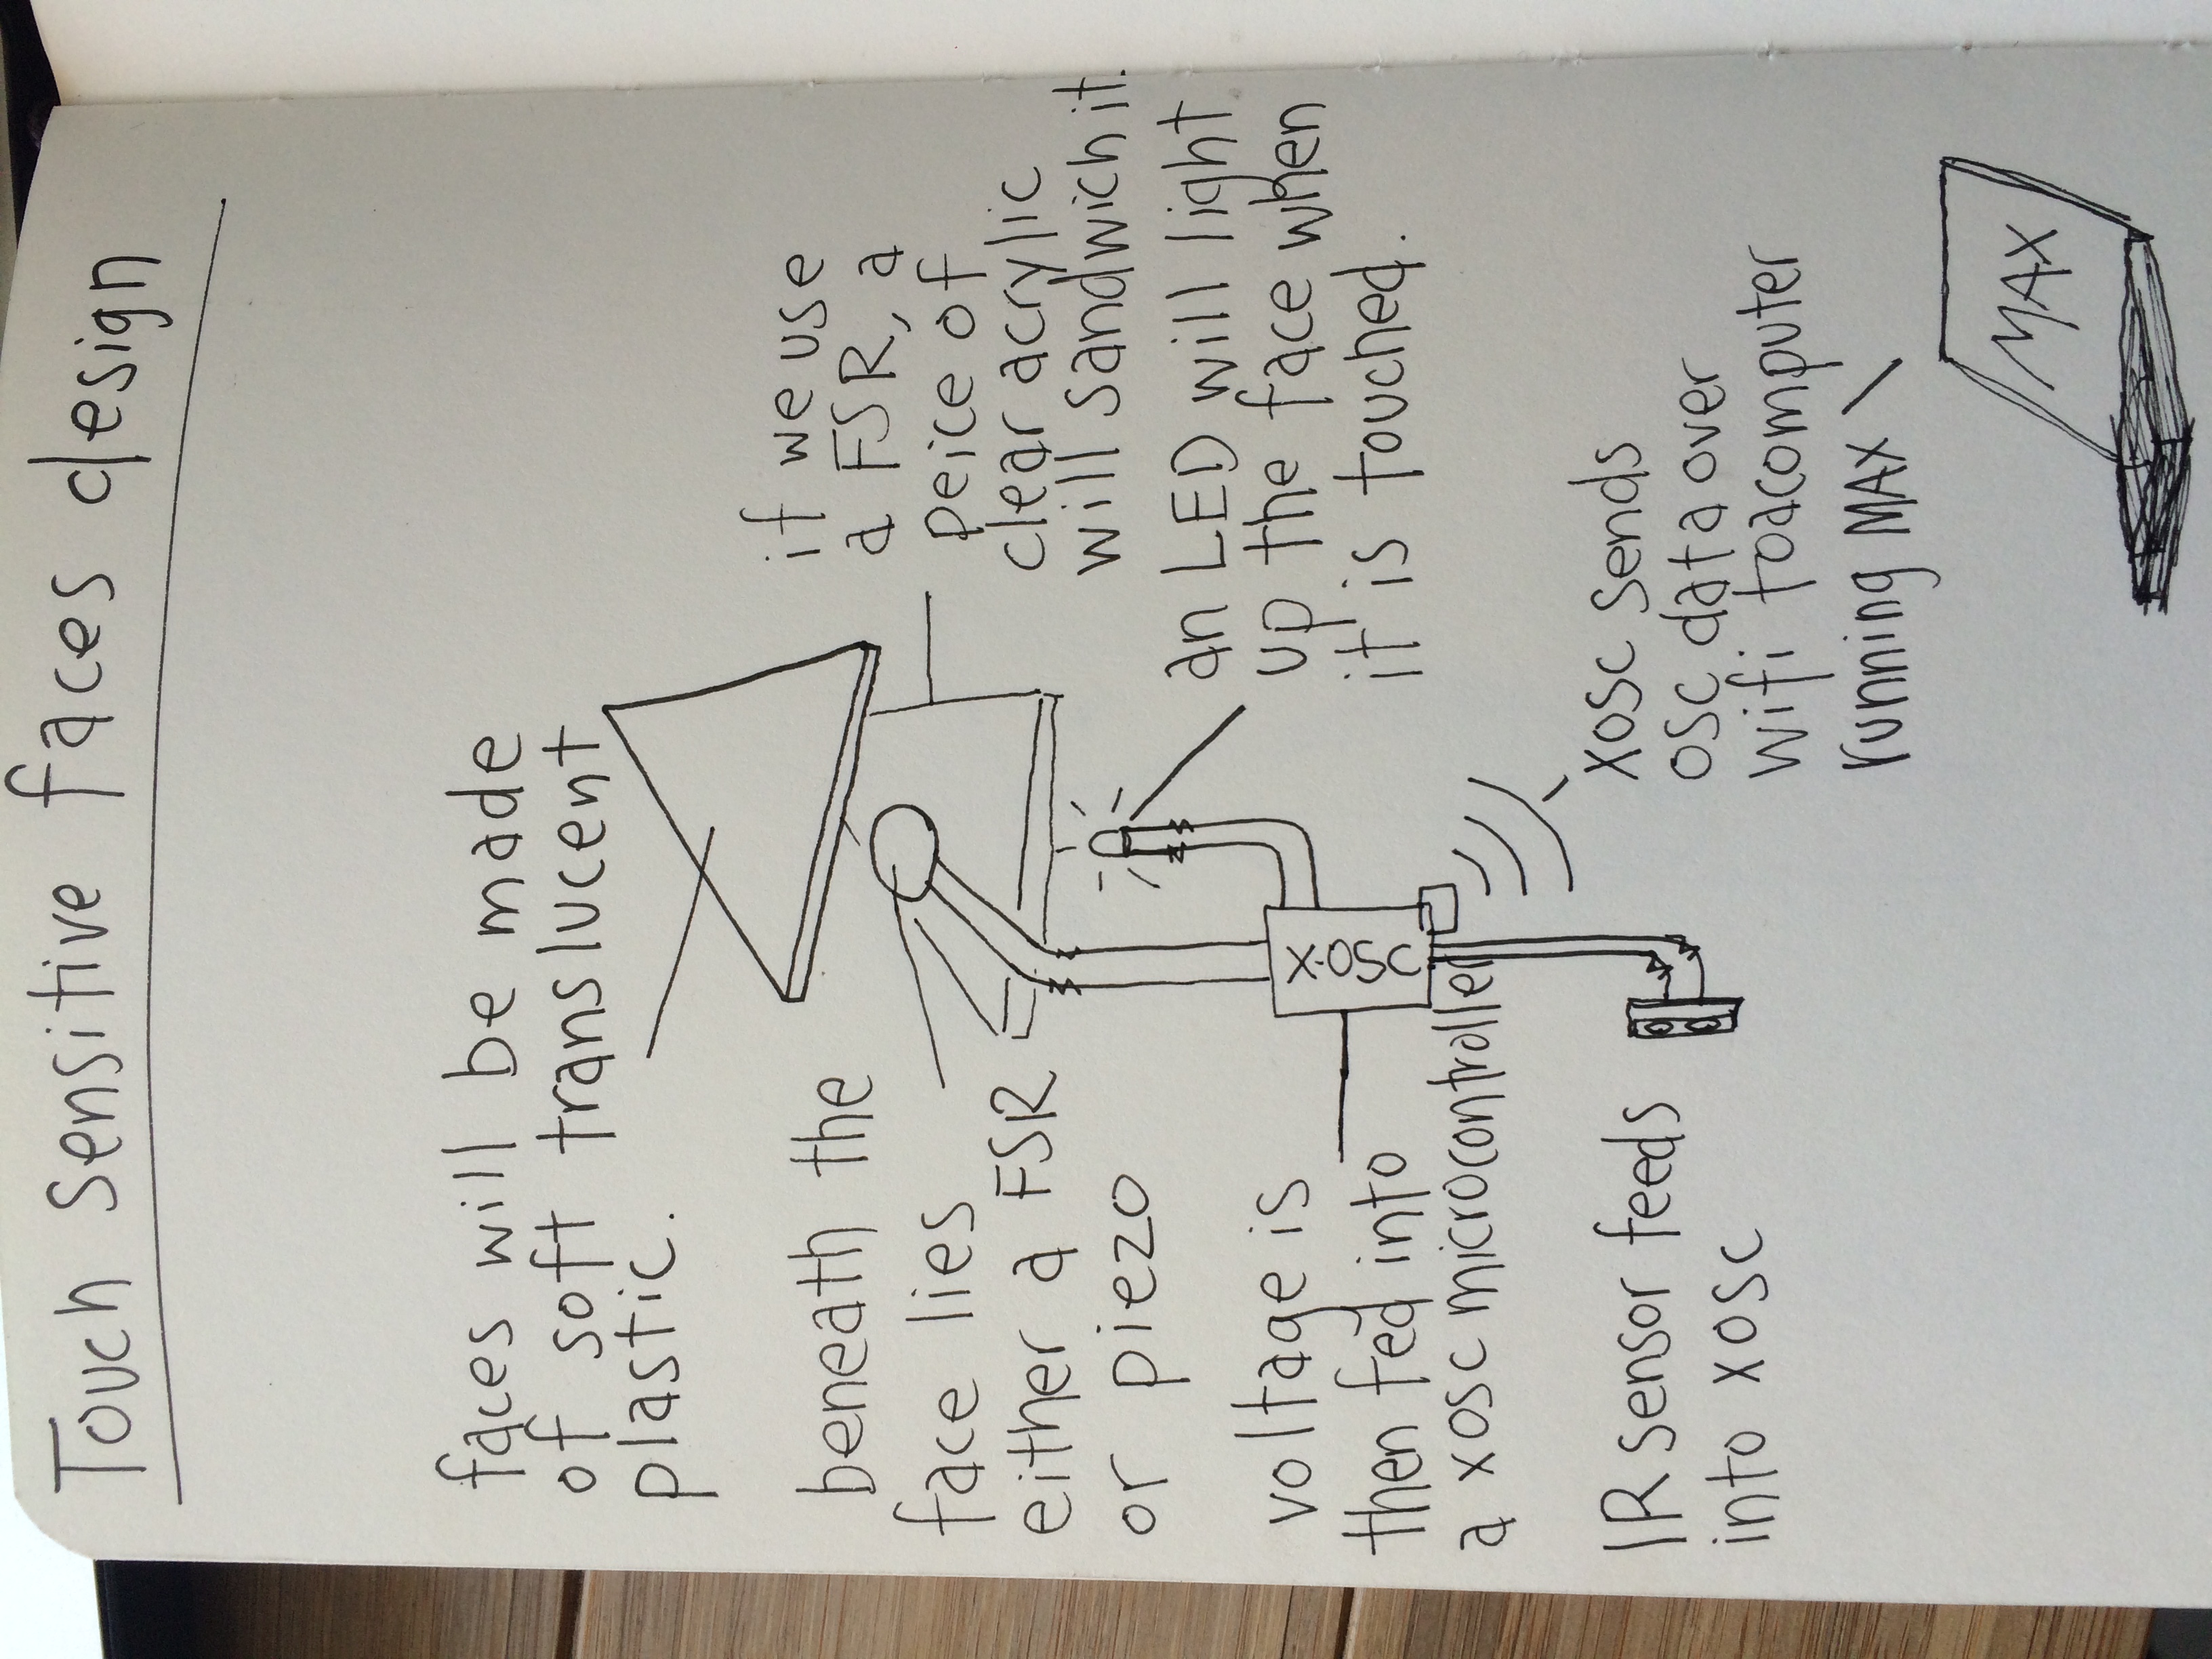 Touch sensitive faces design
faces will be made
of soft translucent
plastic.
beneath the
face lies
either a FSR
or piezo
if we use
a FSR, a
peice of
clear acrylic
will sandwich it.
an LED will light
up the face when
it is touched.
voltage is
then fed into
a xosc microcontroller
X-OSC
IR sensor feeds
into xosc
xosc sends
osc data over
wifi toacomputer
running MAX
MAX